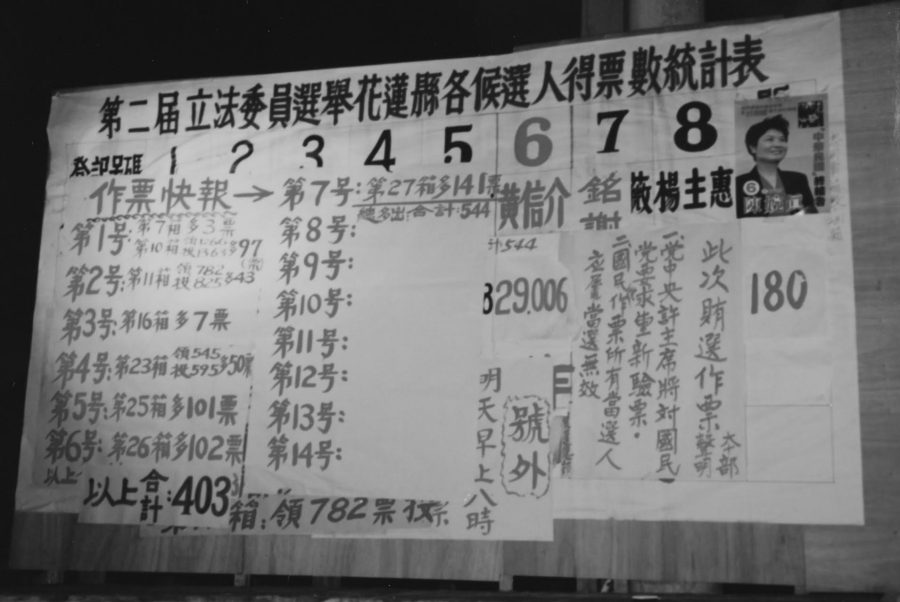 第二届立法委員選舉花蓮縣各候選人得票數統計表
1 2 3 4 5 6 7 8
作票快報→
第1号:第7箱多3票
第10箱
多97
第2号:第11箱領782投825多43
第3号:第16箱多7票
第4号:第23箱領545投595多50
第5号:第25箱多101票
第6号:第26箱多102票
以上
以上合計:403
箱:領782票投
第7号:第27箱多141票
總多出合計:544
第8号:
第9号:
第10号:
第11号:
第12号:
第13号:
第14号:
黃信介
544
829.006
明天早上八時
號外
銘謝
楊主惠
6
180
此次賄選作票
本部聲明
一.党中央許主席將対國民党要求重新驗票.
二.國民作票所有當選人立屬當選無效